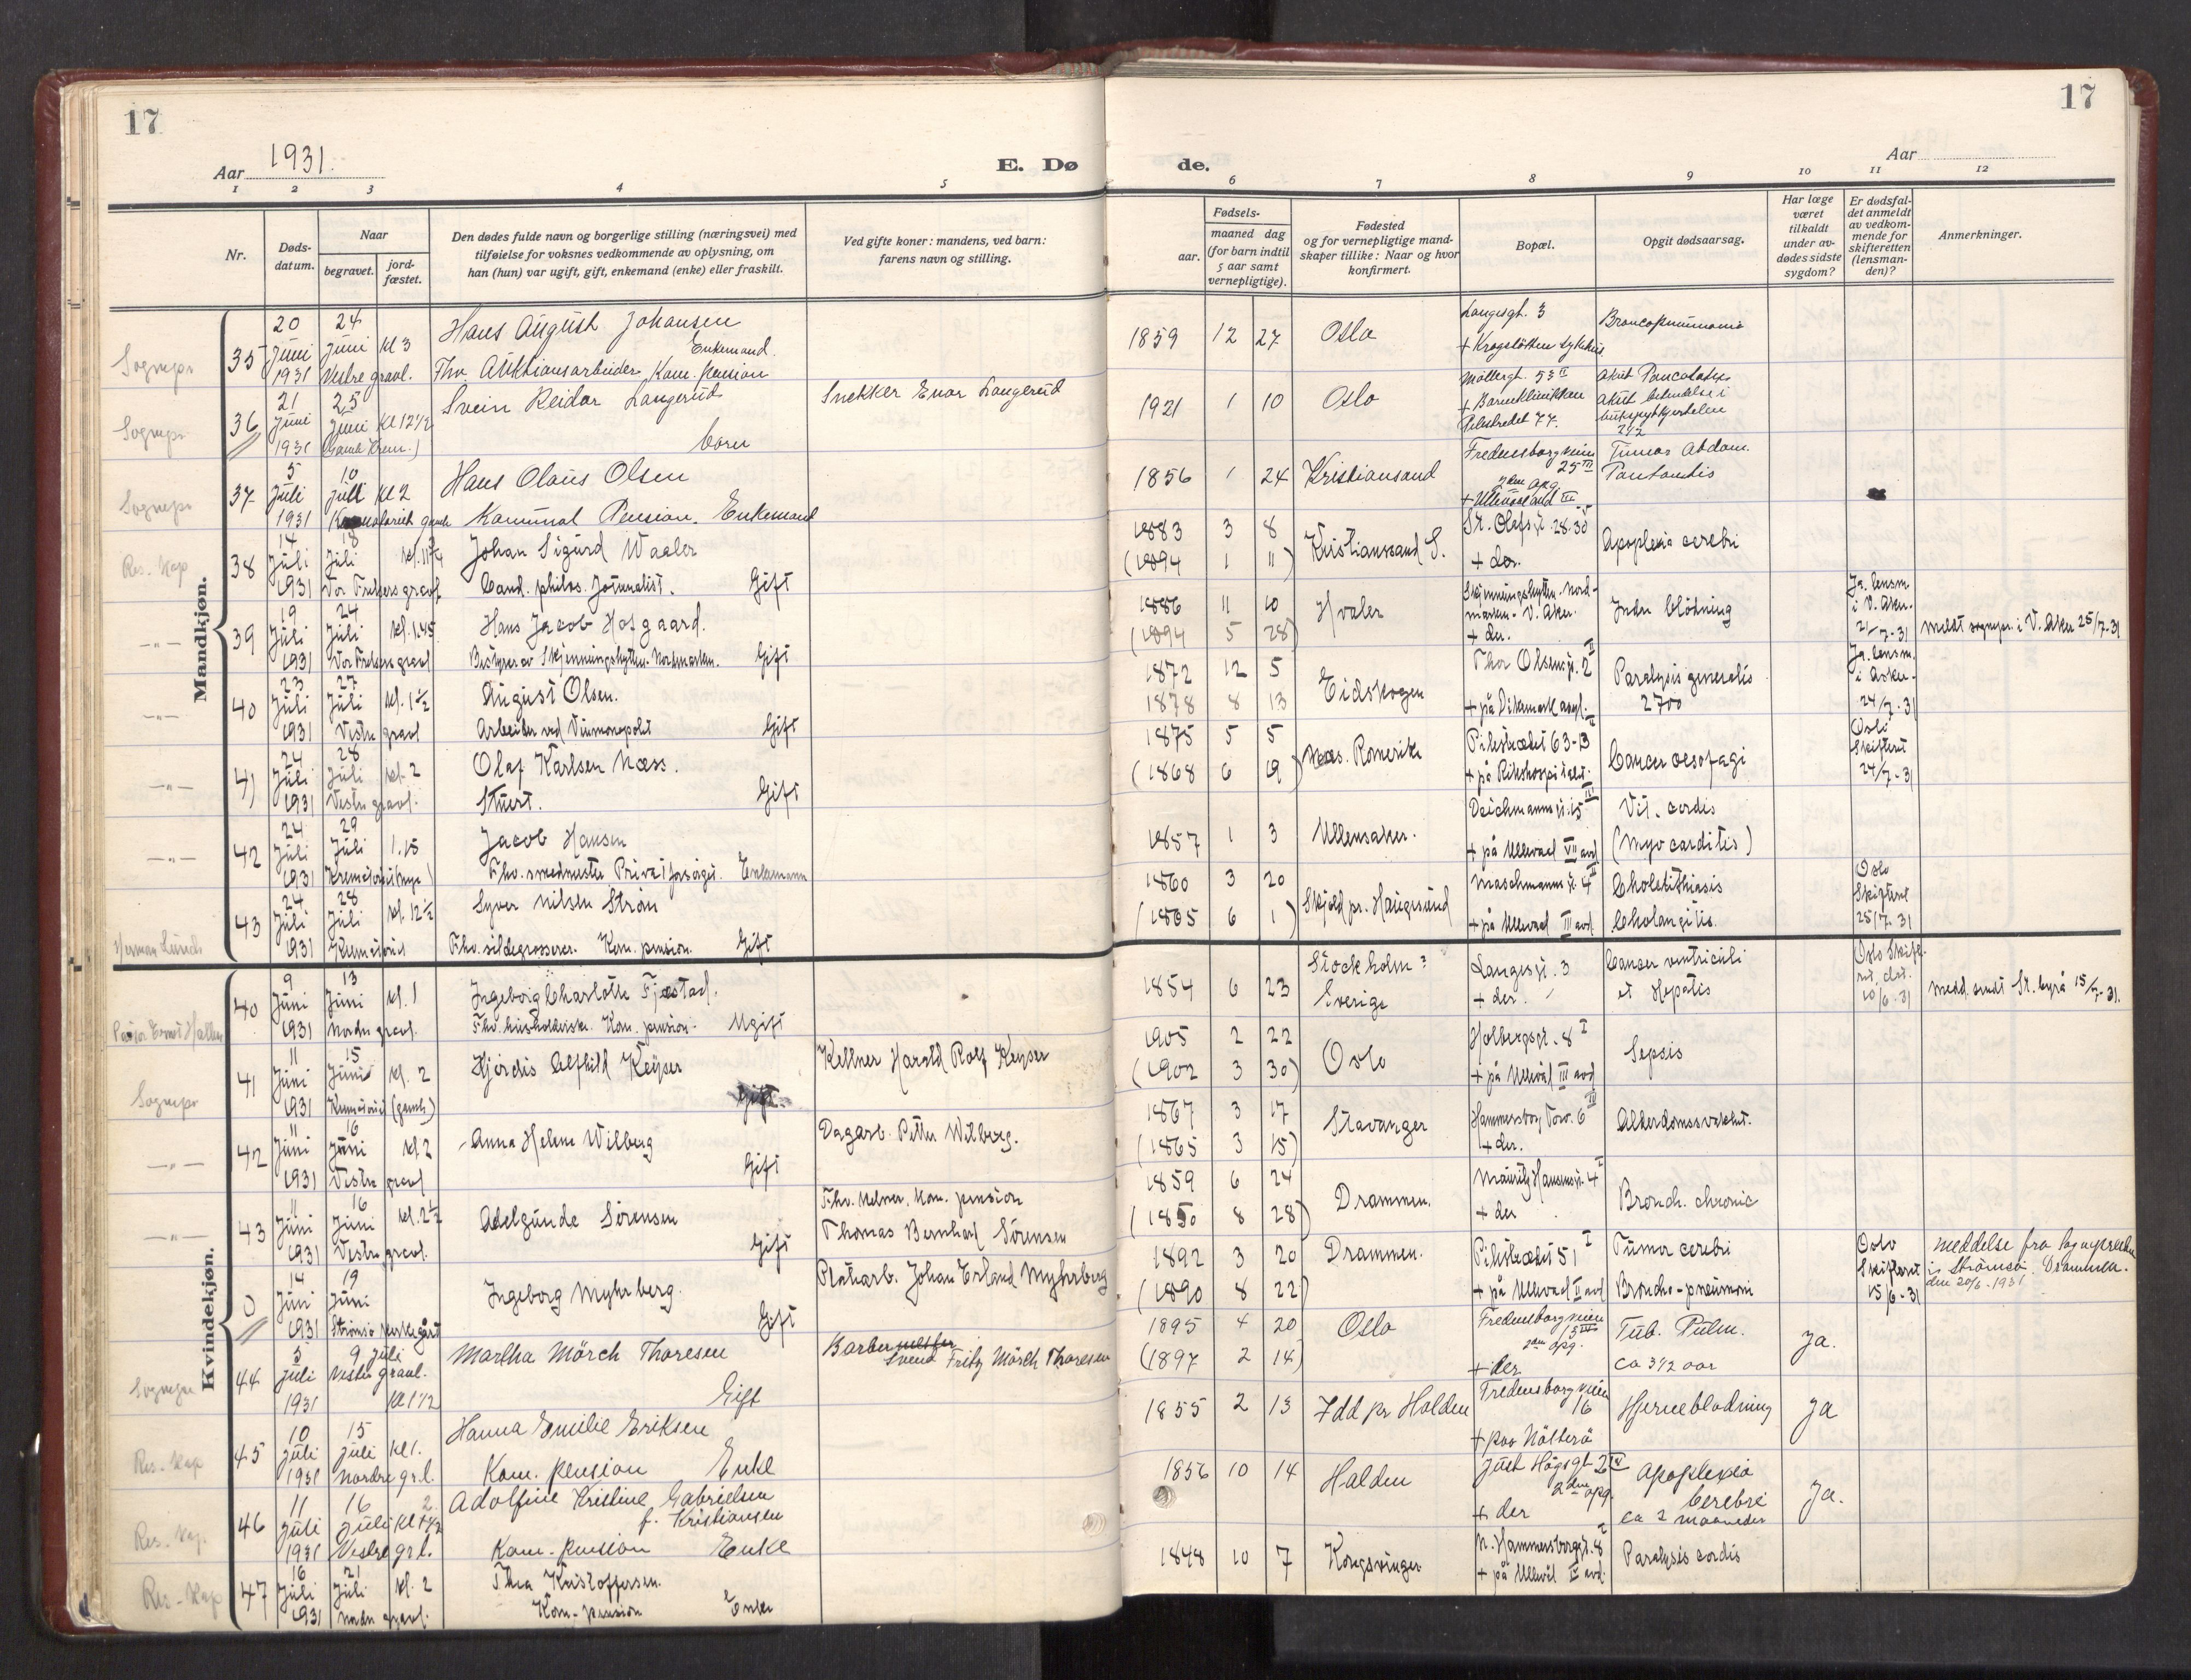 17
17
Aar 1931.
E. Dø
de.
Aar
1 2 3 4 5
6 7 8 9 10 11 12
Nr.
Døds-
datum.
Naar
begravet.
jord-
fæstet.
Den dødes fulde navn og borgerlige stilling (næringsvei) med
tilføielse for voksnes vedkommende av oplysning, om
han (hun) var ugift, gift, enkemand (enke) eller fraskilt.
Ved gifte koner: mandens, ved barn:
farens navn og stilling.
Fødsels-
aar.
maaned dag
(for barn indtil
5 aar samt
vernepligtige).
Fødested
og for vernepligtige mand-
skaper tillike: Naar og hvor
konfirmert.
Bopæl.
Opgit dødsaarsag.
Har læge
været
tilkaldt
under av-
dødes sidste
sygdom?
Er dødsfal-
det anmeldt
av vedkom-
mende for
skifteretten
(lensman-
den)?
Anmerkninger.
Mandkjøn.
Sognepr 35 20 Juni 1931 24 Juni kl 3 Vestre gravl.
Hans August Johansen
Enkemand.
Fhv. Auktionsarbeider Kom. pension
1859 12 27 Oslo
Langesgt. 3
+ Krogstøtten Sykehus
Broncopneumonia
Sognepr. 36 21 Juni 1931 25 Juni kl 12 1/2 Gamle Krem.)
Svein Reidar Langerud
barn
Snekker Enar Langerud
1921 1 10 Oslo
Møllergt. 53 II
+ Barneklinikken
Pilestredet 77.
Akut Pancreatitis
Akut betendelse i
bukspytkjertelen
2 1/2
Sognepr 37 5 Juli 1931 10 Juli kl 2 Krematoriet gamle
Hans Olaus Olsen
Komunal Pension. Enkemand
1856 1 24 Kristiansand
Fredensborgveien
25 III
2den opg.
+ Ullevål avd III
Tumor Abdom.
Res. Kap 38 14 Juli 1931 18 Juli kl. 11 3/4 Vor Frelsers gravl
Johan Sigurd Waaler
Cand. philos. Journalist. Gift
1883 3 8
(1894 1 11)
Kristianssand S.
St. Olafs gt. 28-30 V
+ der.
Apoplexia cerebri
-"- 39 19 Juli 1931 24 Juli kl. 1.45 Vor Frelsers gravl
Hans Jacob Hofgaard.
Bestyrer av Skjenningshytten. Nordmarken. Gift
1886 11 10
(1894 5 28)
Hvaler
Skjenningshytten. Nord-
marken - V. Aker.
+ der.
Indre blödning
Ja. lensm.
i V. Aker.
21/7-31
meldt sognepr. i V. Aker 25/7-31
-"- 40 23 Juli 1931 27 Juli kl. 1 1/2 Vestre gravl
August Olsen.
Arbeider ved Vinmonopolet Gift
1872 12 5
1878 8 13
Eidskogen
Thor Olsens gt. 2 II
+ på Dikemark asyl.
Paralysis generalis
2700
Ja. lensm.
i Asker.
24/7-31
-"- 41 24 Juli 1931 28 Juli kl. 2 Vestre gravl.
Olaf Karlsen Næss.
Stuert. Gift
1875 5 5
(1868 6 19)
Næs. Romerike
Pilestrædet 63-B II
+ på Rikshospitalet.
Cancer oesofagi
Oslo
Skifteret
24/7-31
-"- 42 24 Juli 1931 29 Juli 1.15 Krematoriet (nye)
Jacob Hansen
Fhv. smedmester Privat forsörget. Enkemann
1857 1 3 Ullensaker.
Deichmanns gt. 15 III
+ på Ullevaal VII avd
Vit. cordis
(Myocarditis)
Herman Lunde 43 24 Juli 1931 28 Juli kl. 12 1/2 Krematoriet
Syver Nilsen Ström
Fhv. sildegrosserer. Kom. pension. Gift
1860 3 20
(1865 6 1)
Skjold pr. Haugesund
Maschmanns gt. 4 II
+ på Ullevaal III avd.
Cholelithiasis
Cholangitis.
Oslo
Skifteret
25/7-31
Kvindekjøn.
Pastor Ernst Hallen 40 9 Juni 1931 13 Juni kl. 1 Nordre gravl.
Ingeborg Charlotte Fjæstad.
Fhv. husholderske. Kom. pension. Ugift
1854 6 23
Stockholm?
Sverige
Langes gt. 3
+ der.
Cancer ventriculi
et Hepatis
Oslo Skifte-
ret, dat.
10/6-31
medd. sendt St. byrå 15/7-31.
Sognepr 41 11 Juni 1931 15 Juni kl. 2 Krematoriet (gamle)
Hjördis Alfhild Keyser
Gift.
Kellner Harald Rolf Keyser
1905 2 22
(1902 3 30)
Oslo
Holbergsgt. 8 I
+ på Ullevål III avd
Sepsis
-"- 42 11 Juni 1931 16 Juni kl 2 Vestre gravl
Anna Helene Wilberg
Gift
Dagarb. Petter Wilberg.
1867 3 17
(1865 3 15)
Stavanger
Hammersborg Torv. 6 III
+ der.
Alderdomssvakhet.
-"- 43 11 Juni 1931 16 Juni kl. 2 1/2 Vestre gravl.
Adelgunde Sörensen
Gift
Fhv. kelner. Kom. pension
Thomas Bernhard Sörensen
1859 6 24
(1850 8 28)
Drammen.
Mauritz Hansens gt. 4 I
+ der
Bronch. chronic
0 14 Juni 1931 19 Juni Strömsö kirkegård
Ingeborg Myhrberg.
Gift
Platearb. Johan Erland Myhrberg
1892 3 20
(1890 8 22)
Drammen.
Pilestrædet 51 I
+ på Ullevaal II avd
Tumor cerebri
Broncho-pneumoni
Oslo
Skifteret
15/6-31
Meddelse fra Sognepresten
i Strömsö. Drammen.
den 20/6-1931
Sognepr 44 5 Juli 1931 9 Juli Vestre gravl. Kl 1 1/2
Martha Mörch Thoresen
Gift
Barbermester
Svend Fritz Mörch Thoresen
1895 4 20
(1897 2 14)
Oslo
Fredensborgveien
15 III
2den opg.
+ der
Tub. Pulm.
ca 3 1/2 aar
Ja.
Res. Kap 45 10 Juli 1931 15 Juli kl 1. Nordre gr.l.
Hanna Emilie Eriksen
Kom. pension Enke
1855 2 13 Idd pr Halden
Fredensborgveien
16
+ paa Nötterö
Hjerneblødning
Ja
Res. Kap. 46 11 Juli 1931 16 Juli Vestre gr.l.
Adolfine Kristine Gabrielsen
f. Kristiansen
Kom. pension Enke
1856 10 14 Halden
Just Høgsgt 2 IV
2den opg.
+ der
Apoplexia
Cerebri
ca 2 maaneder
Ja.
Res-Kap 47 16 Juli 1931 21 Juli kl. 2 Nordre gravl.
Thea Kristoffersen.
Kom. pension Enke
1848 10 7 Kongsvinger
N. Hammersborg gt. 8 I
+ på Ullevål IV avd.
Paralysis cordis